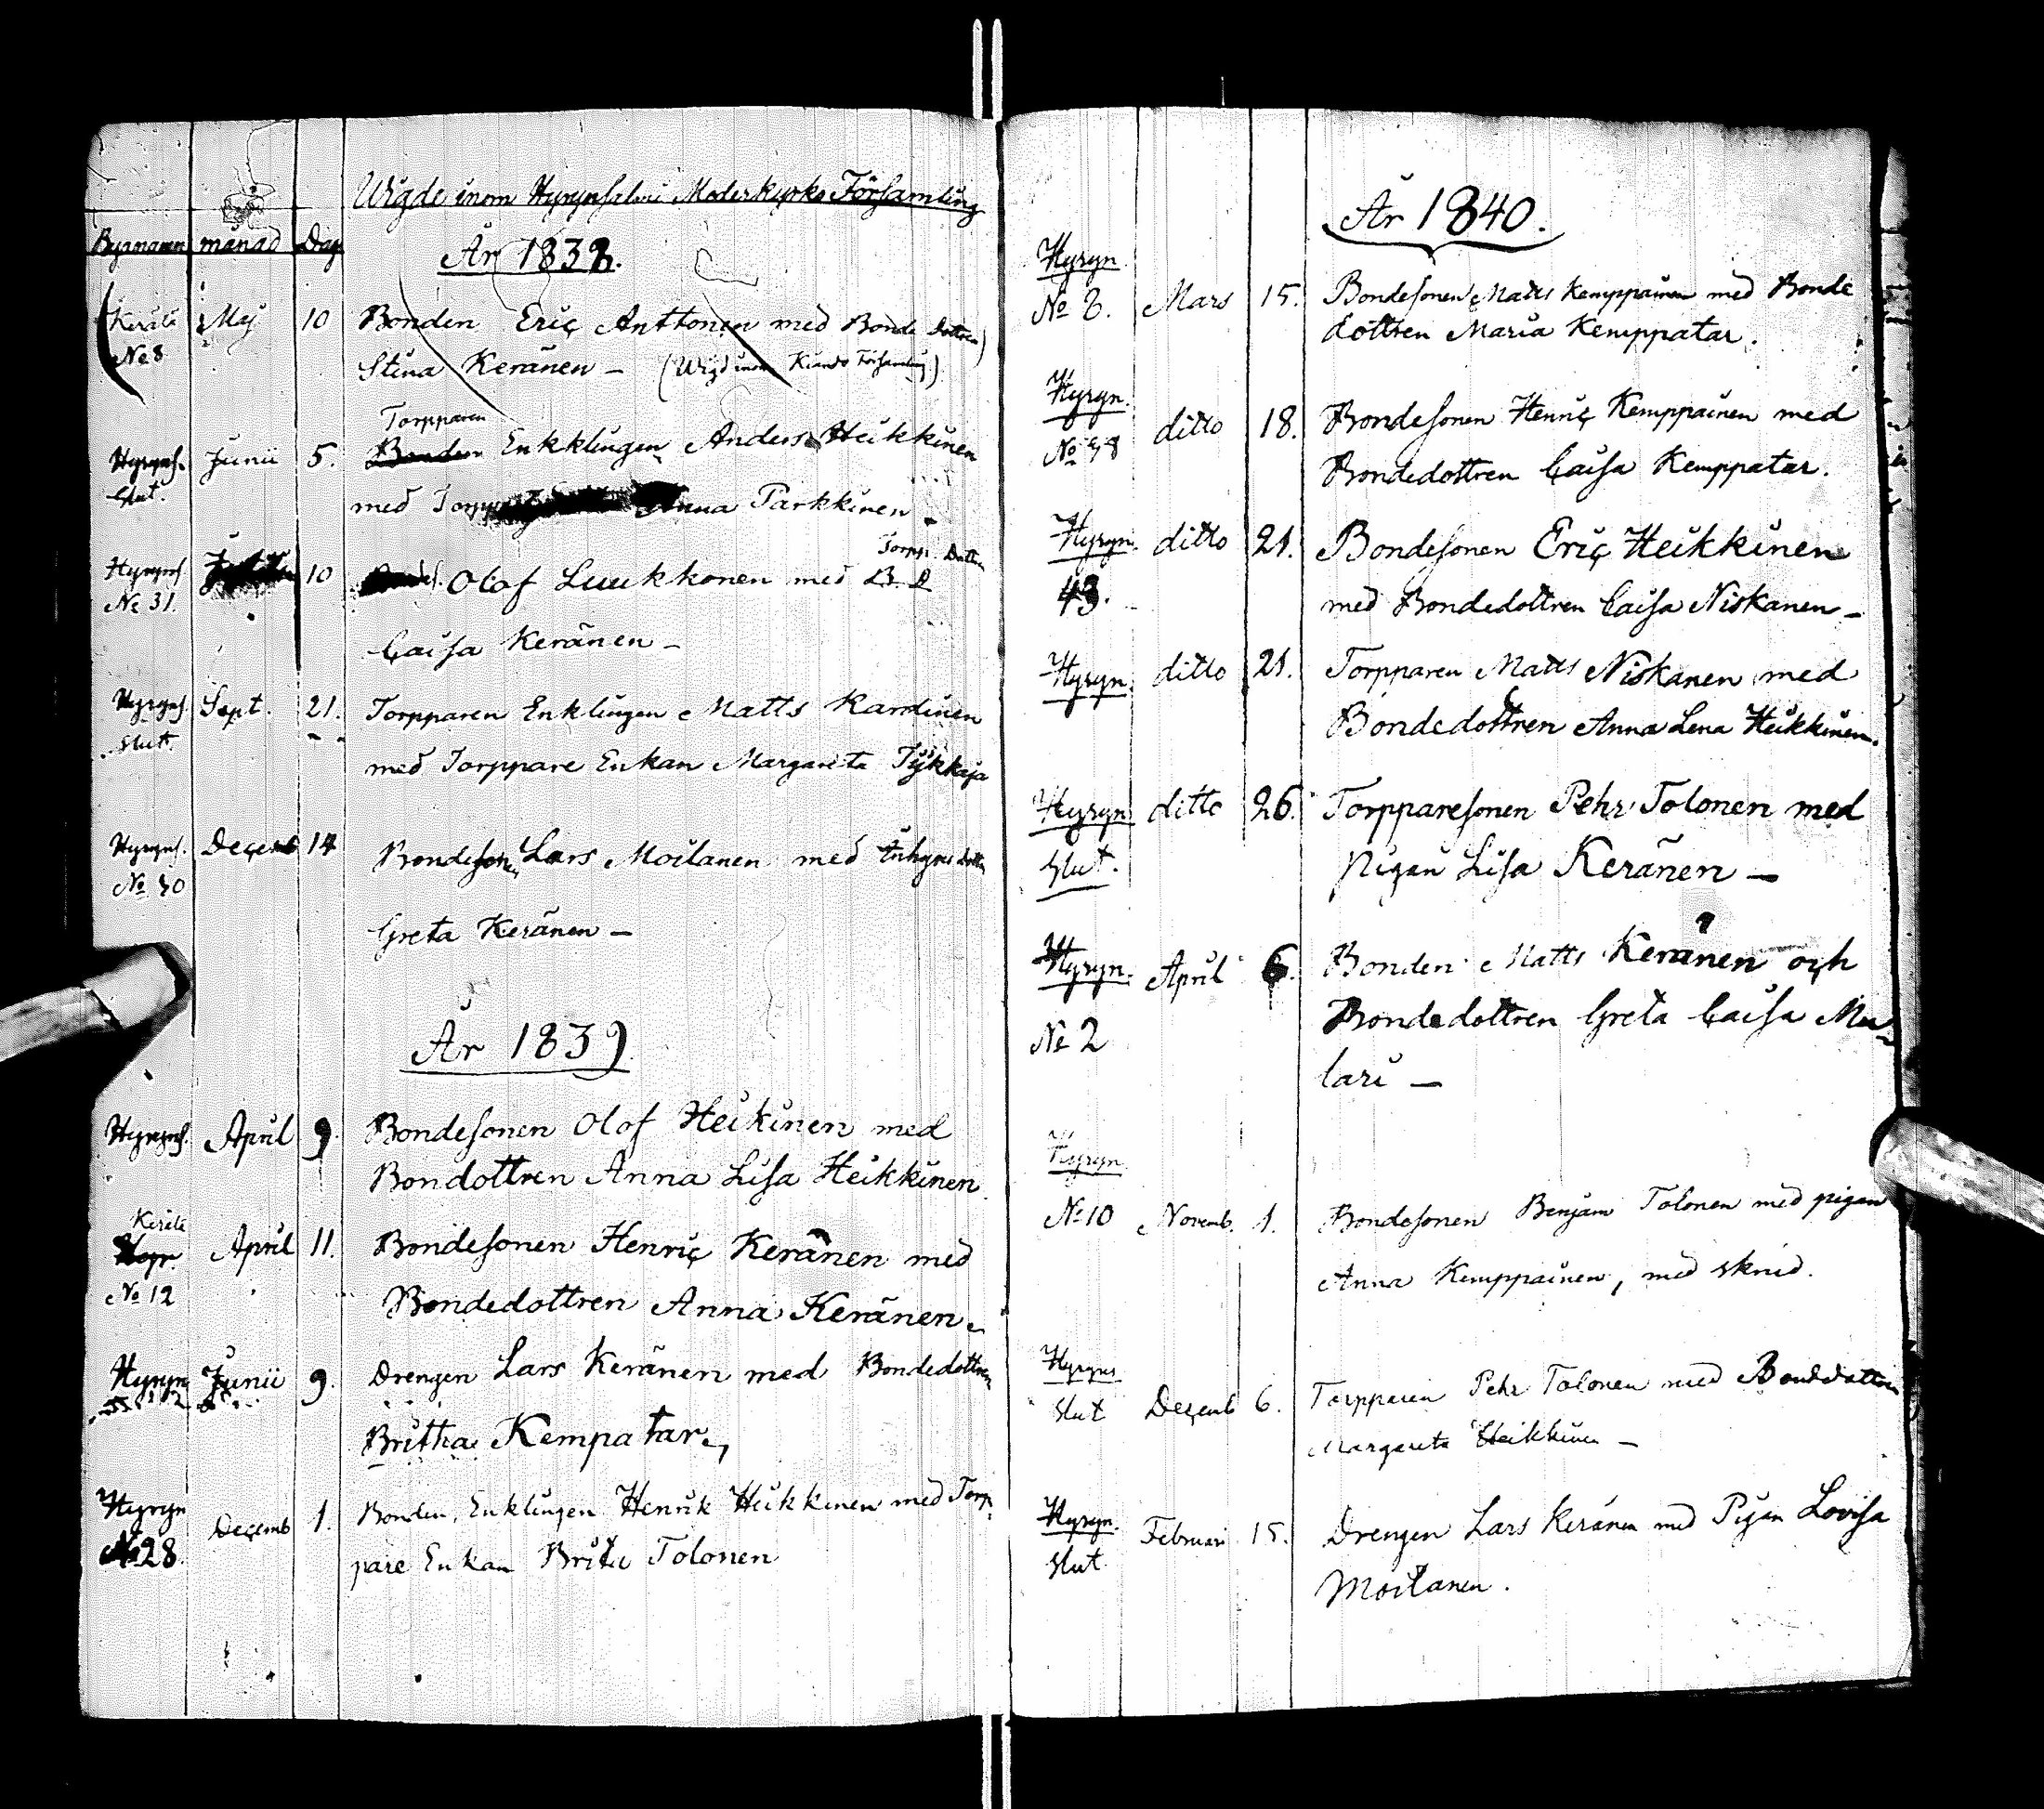 Wigde inom Hyrynsalmi Moderkyrko Församling
Byanamn månad Dag
År 1838.
Keräle Maj 10 Bonden Eriç Anttonen med Bonde Dottren
No 8 Stina Keränen – (Wigd inom Kiando Församling)
Torpparen
Hyryns. Junii 5. Bonden Enkklingen Anders Heikkinen
Slut. med Anna Parkkinen
Torp. Dottren
Hyryns 10 Olof Luukkonen med B. D
No 31. Caisa Keränen –
Hyryns. Sept. 21. Torpparen Enklingen Matts Kardinen
Slut. med Torppare Enkan Margareta Tykkäjä
Hyryns. Decemb 14 Bondesonen Lars Moilanen med
No 30
Greta Keränen –
År 1839
Hyryns. April 9. Bondesonen Olof Heikinen med
Bondottren Anna Lisa Heikkinen
Keräle
April 11. Bondesonen Henriç Keränen med
No 12
Bondedottren Anna Keränen
Hyryn Junii 9. Drengen Lars Keränen med Bondedottren
Britha Kempatar
Hyryn Decemb 1. Bonden, Enklingen Henrik Heikkinen med Torp
No 28. pare Enkan Brita Tolonen
År 1840.
Hyryn.
No 8. Mars 15. Bondesonen Matts Kemppainen med Bonde
dottren Maria Kemppatar.
Hyryn. ditto 18. Bondesonen Henriç Kemppainen med
No 48 Bondedottren Caisa Kemppatar.
Hyryn. ditto 21. Bondesonen Eriç Heikkinen
43. med Bondedottren Caisa Niskanen –
Hyryn. ditto 21. Torpparen Matts Niskanen med
Bondedottren Anna Lena Heikkinen.
Hyryn. ditto 26. Torpparesonen Pehr Tolonen med
Slut. Pigan Lisa Keränen –
Hyryn. April 6. Bonden Matts Keränen och
No 2 Bondedottren Greta Caisa Mu-
lari –
Hyryn
No 10 Novemb. 1. Bondesonen Benjam Tolonen med pigan
Anna Kemppainen, med skrud.
Hyryns
Slut Decemb 6. Torpparen Pehr Tolonen med Bonddottren
Margareta Heikkinen –
Hyryn. Februari 15. Drengen Lars Keränen med Pigan Lovisa
Slut
Moilanen.